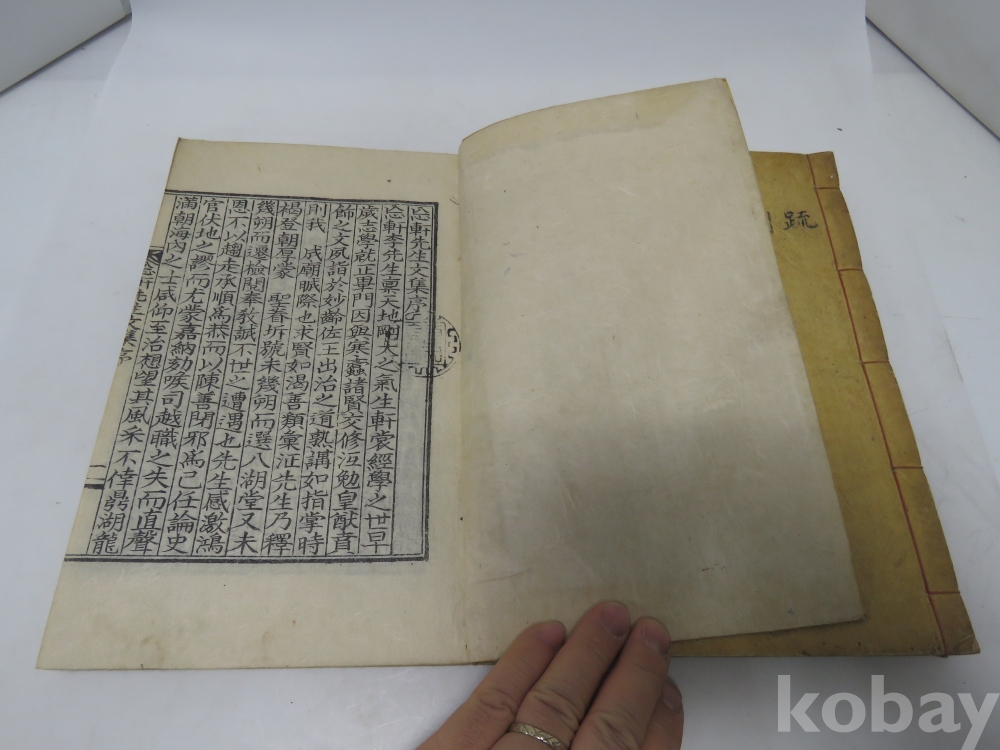 忘軒先生文集序
忘軒李先生稟天地剛大之氣生軒裳經學之世早
歲志學就正畢門因與寒蠹諸賢交修互勉皇猷賁
飾之文夙詣於妙齡佐王出治之道熟講如指掌時
則我 成廟賦際也求賢如渴善類彙征先生乃釋
褐登朝厚蒙 聖眷坼號未幾朔而選八湖堂又未
幾朔而遷檢閱奉敎誠不世之遭遇也先生感激鴻
恩不以趨走承順爲恭而以陳善閉邪爲己任論史
官伏地之謬而尤蒙嘉納劾喉司越職之失而直聲
滿朝海內之士咸仰至治想望其風采不倖鼎湖龍
忘軒先生文集序
一
疏
kobay